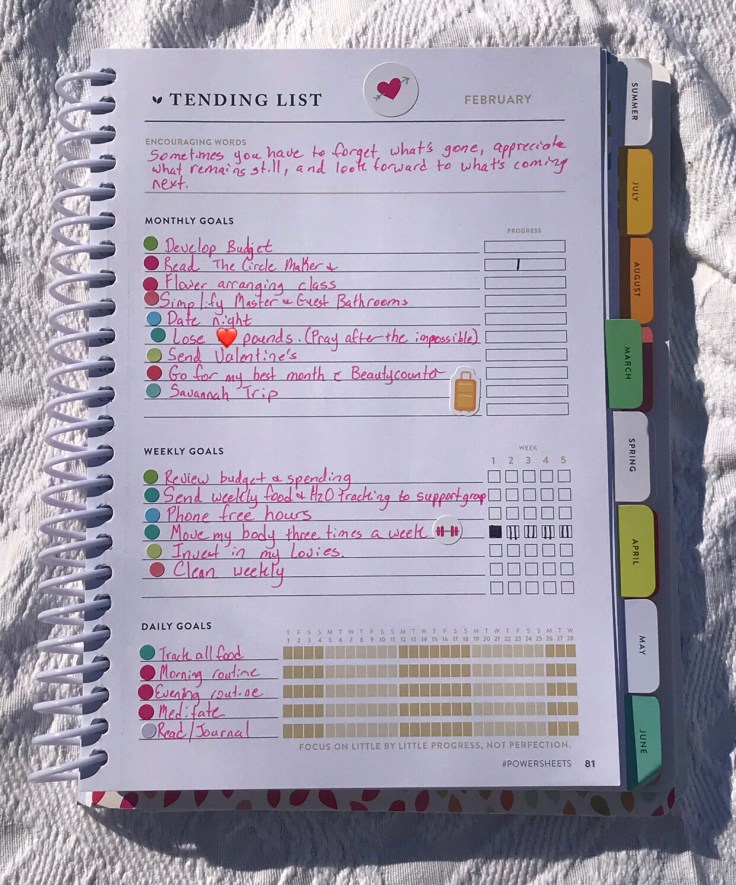 TENDING LIST
FEBRUARY
ENCOURAGING WORDS
Sometimes you have to forget what's gone, appreciate
what remains still, and look forward to what's coming
next.
MONTHLY GOALS
PROGRESS
Develop Budget
Read The Circle Maker
Flower arranging class
Simplify Master & Guest Bathrooms
Date night
Lose ❤️ pounds. (Pray after the impossible)
Send Valentine's
Go for my best month c̄ Beautycounter
Savannah Trip
WEEKLY GOALS
WEEK
1 2 3 4 5
Review budget & spending
Send weekly food & H2O tracking to support group
Phone free hours
Move my body three times a week
Invest in my Lovies.
Clean weekly
DAILY GOALS
T F S S M T W T F S S M T W T F S S M T W T F S S M T W
1 2 3 4 5 6 7 8 9 10 11 12 13 14 15 16 17 18 19 20 21 22 23 24 25 26 27 28
Track all food
Morning routine
Evening routine
Meditate
Read/Journal
FOCUS ON LITTLE BY LITTLE PROGRESS, NOT PERFECTION.
#POWERSHEETS 81
SUMMER
JULY
AUGUST
MARCH
SPRING
APRIL
MAY
JUNE